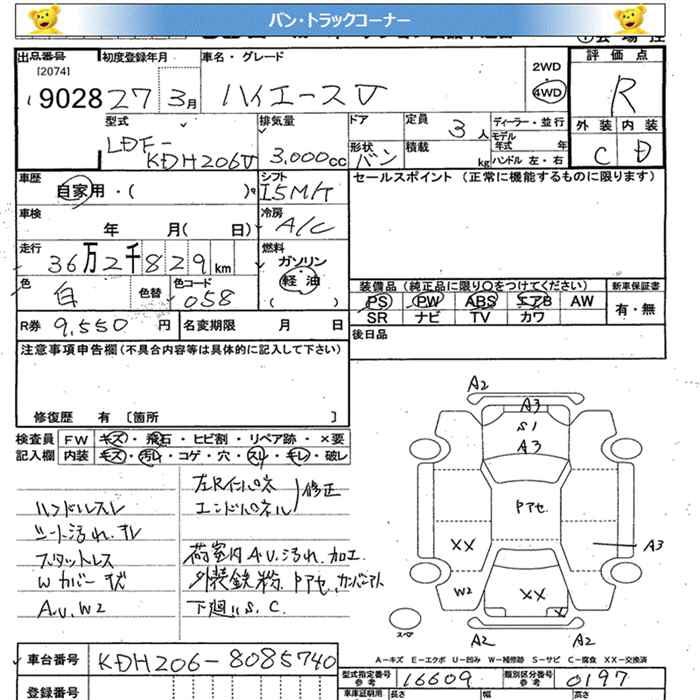 バン・トラックコーナー
出品番号
[2074]
9028
初度登録年月
27 3月
車名・グレード
ハイエースV
2WD
4WD
評価点
R
外装 内装
C D
型式
LDF-
KDH206V
排気量
3.000cc
ドア
形状
バン
定員
3人
積載
kg
ディーラー・並行
モデル
年式 年
ハンドル 左・右
車歴
自家用・( )
シフト
I5M/T
セールスポイント (正常に機能するものに限ります)
車検
年 月( 日)
冷房
A/C
走行
36万2千829km
燃料
ガソリン
軽油
( )
色
白
色替
色コード
058
装備品 (純正品に限り○をつけてください)
新車保証書
PS PW ABS エアB AW
有・無
SR ナビ TV カワ
R券 9,550円
名変期限 月 日
後日品
注意事項申告欄(不具合内容等は具体的に記入して下さい)
修復歴 有 [箇所 ]
検査員 FW キズ・飛石・ヒビ割・リペア跡・×要
記入欄 内装 キズ・汚れ・コゲ・穴・スレ・キレ・破レ
ハンドルスレ
シート汚れ.キレ
スタットレス
Wカバー キズ
A.U.W2
左Rインパネ
エンドパネル
修正
荷室内A.U.汚れ.加工
外装鉄粉.Pアセ.カンバニアト
下廻りS.C.
A2
A3
S1
A3
Pアセ
XX
A3
W2
XX
X
A2
A2
スペア
A-キズ E-エクボ U-凹み W-補修跡 S-サビ C-腐食 XX-交換済
車台番号 KDH206-8085740
型式指定番号
参考
16609
類別区分番号
参考
0197
登録番号
車庫証明用
長さ 幅 高さ